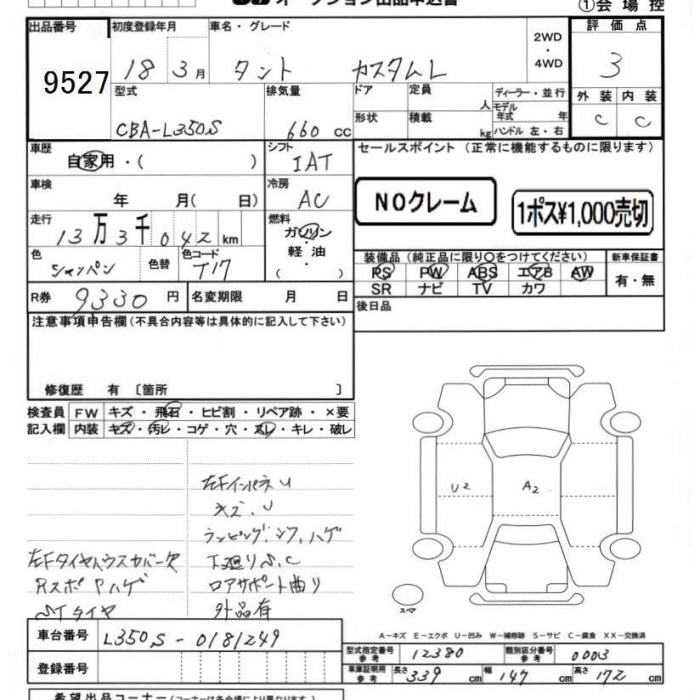 オークション出品申込書
①会場控
出品番号
初度登録年月
車名・グレード
2WD
・
4WD
評価点
9527
18 3月
タント カスタムL
3
型式
排気量
ドア
定員
人
ディーラー・並行
モデル年式 年
外装
内装
CBA-L350S
660 cc
形状
積載
kg
ハンドル 左・右
C
C
車歴
自家用・( )
シフト
IAT
セールスポイント (正常に機能するものに限ります)
車検
年 月( 日)
冷房
AC
NOクレーム
1ポス¥1,000売切
走行
13万3千042km
燃料
ガソリン
・
軽油
( )
色
シャンパン
色替
色コード
T17
装備品 (純正品に限り○をつけてください)
新車保証書
PS PW ABS エアB AW
SR ナビ TV カワ
有・無
R券 9330 円
名変期限 月 日
後日品
注意事項申告欄(不具合内容等は具体的に記入して下さい)
修復歴 有 〔箇所 〕
検査員
記入欄
FW キズ・飛石・ヒビ割・リペア跡・×要
内装 キズ・汚レ・コゲ・穴・スレ・キレ・破レ
左Fインパネ U
キズ、U
左FタイヤハウスカバーX
下廻りS、C
Rスポ Pハゲ
ロアサポート曲り
STタイヤ
外品有
U2
A2
スペア
A−キズ E−エクボ U−凹み W−補修跡 S−サビ C−腐食 XX−交換済
車台番号
L350S-0181249
型式指定番号
参考
12380
類別区分番号
参考
0003
登録番号
車庫証明用
参考
長さ 339 cm
幅 147 cm
高さ 172 cm
希望出品コーナー(コーナーは各会場により異なります)